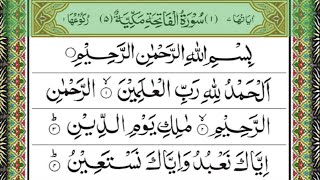 اٰیَاتُهَا ٧ (١) سُوْرَةُ الْفَاتِحَةِ مَكِّيَّةٌ (٥) رُكُوْعُهَا ١
بِسْمِ اللّٰهِ الرَّحْمٰنِ الرَّحِيْمِ
اَلْحَمْدُ لِلّٰهِ رَبِّ الْعٰلَمِيْنَ ۙ۝١
الرَّحِيْمِ ۙ۝٢ مٰلِكِ يَوْمِ الدِّيْنِ ؕ۝٣
اِيَّاكَ نَعْبُدُ وَاِيَّاكَ نَسْتَعِيْنُ ؕ۝٤